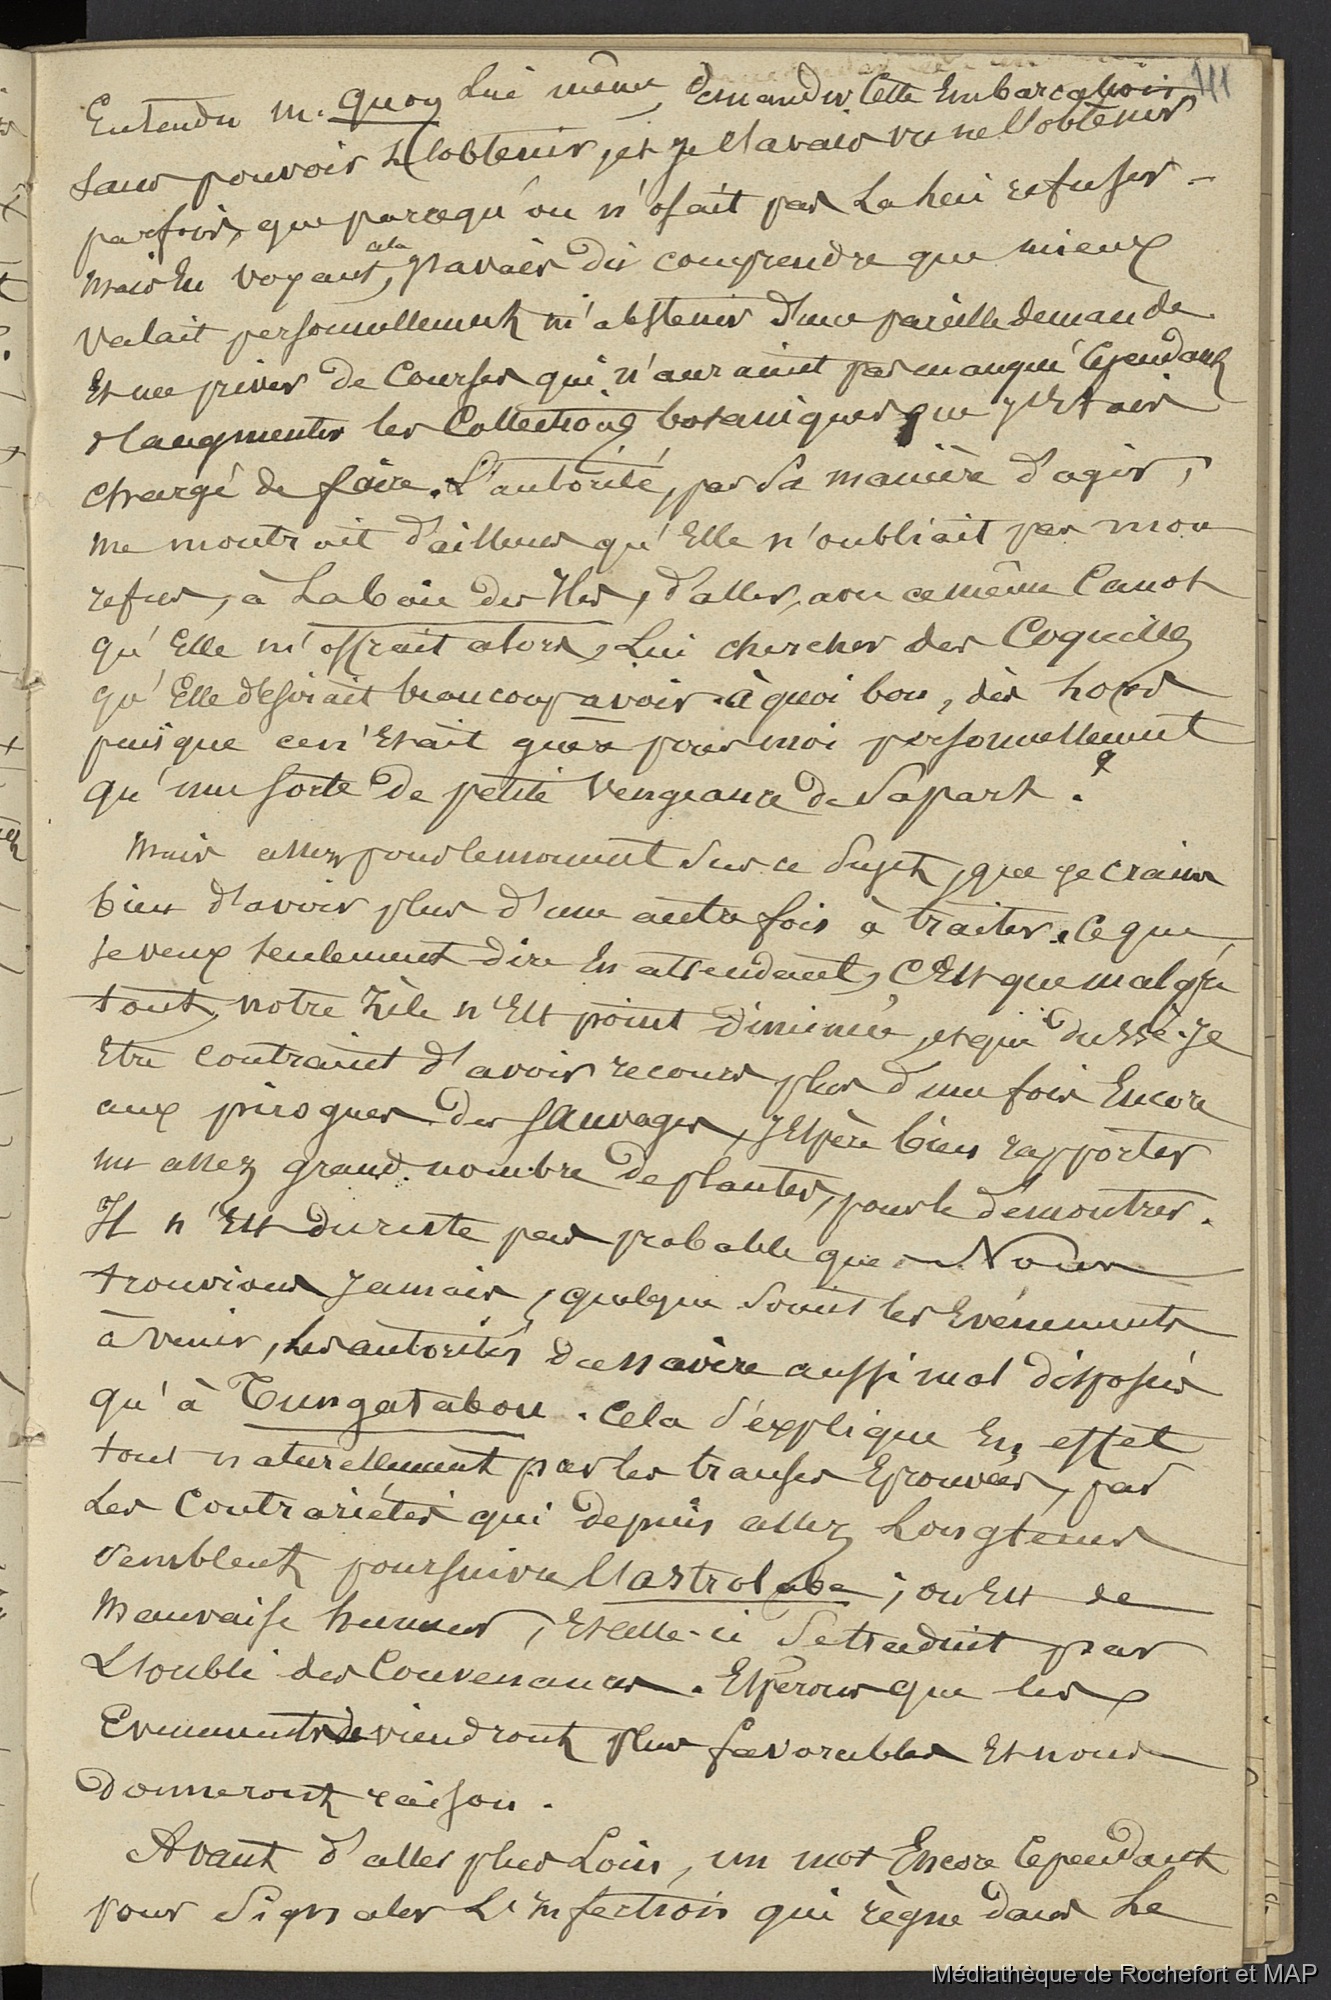 111
Entendu m. Quoy lui même demander cette Embarcation
sans pouvoir l'obtenir, et je l'avais vu ne l'obtenir
parfois, que parcequ'on n'osait pas la lui refuser -
mais en voyant cela, j'avais dû comprendre que mieux
valait personnellement m'abstenir d'une pareille demande
Et me priver de Courses qui n'auraient pas manqué Cependant
d'augmenter les Collections botaniques que j'Etais
chargé de faire. L'autorité, par sa manière d'agir,
me montrait d'ailleurs qu'Elle n'oubliait pas mon
refus, à La baie des Iles, d'aller, avec ce même Canot
qu'Elle m'offrait alors, Lui chercher des Coquilles
qu'Elle désirait beaucoup avoir. à quoi bon, dès lors
puisque ce n'Etait guère pour moi personnellement
qu'une sorte de petite vengeance de sa part ?
Mais assez pour le moment sur ce sujet, que je crains
bien d'avoir plus d'une autre fois à traiter. Ce que
je veux seulement dire En attendant, C'Est que malgré
tout, notre zèle n'Est point diminué, et qui dussè-je
Etre contraint d'avoir recours plus d'une fois Encore
aux pirogues des Sauvages, j'Espère bien rapporter
un assez grand nombre de plantes, pour le démontrer.
Il n'Est du reste pas probable que Nous
trouvions Jamais, quelque soient les Evénements
à venir, les autorités du navire aussi mal disposés
qu'à Tungatabou. Cela s'explique En effet
tout naturellement par les transes Eprouvées, par
Les Contrariétés qui depuis assez Longtems
semblent poursuivre l'astrolabe ; on Est de
mauvaise humeur, Et celle-ci se traduit par
L'oubli des Convenances. Espérons que les
Evenements deviendront plus favorables Et nous
donneront raison.
Avant d'aller plus Loin, un mot Encore Cependant
pour signaler L'Infection qui règne dans Le
Médiathèque de Rochefort et MAP